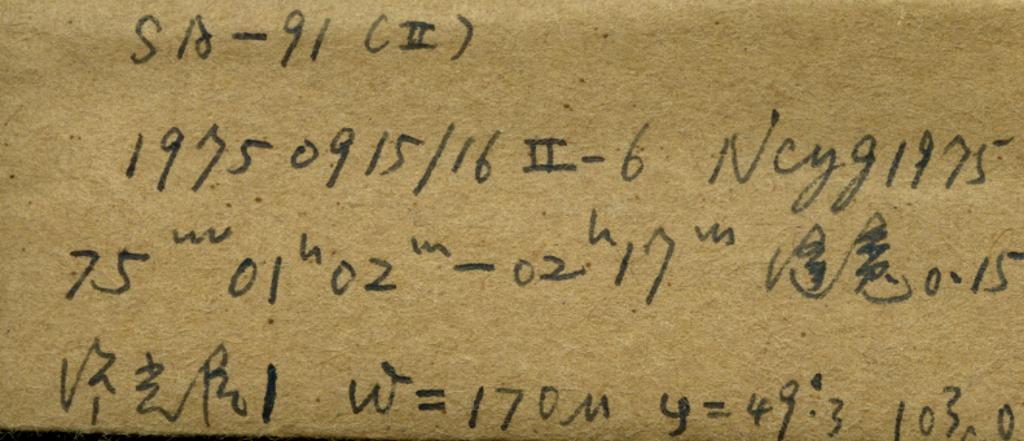 SA-91 (II)
19750915/16 II-6 Ncyg1975
75ᵐ 01ʰ02ᵐ-02ʰ17ᵐ 缝宽0.15
底1 W=170μ φ=49.°3 103.0